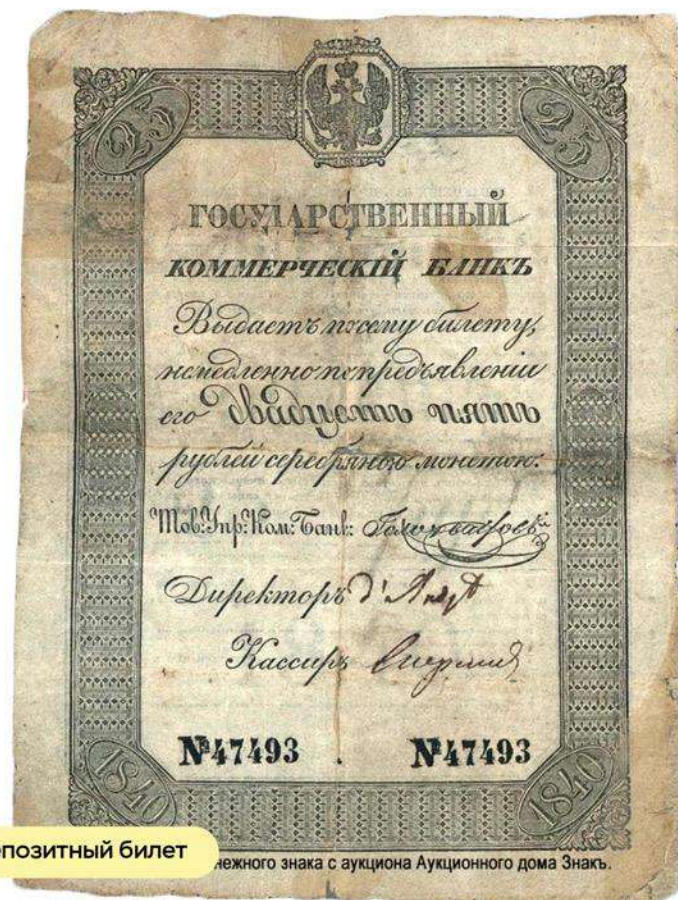 25 25
ГОСУДАРСТВЕННЫЙ
КОММЕРЧЕСКІЙ БАНКЪ
Выдаетъ по сему билету,
немедленно по предъявленіи
его двадцать пять
рублей серебряною монетою.
Тов: Упр: Ком: Банк:
Директоръ
Кассиръ
№47493 . №47493
1840 1840
позитный билет
нежного знака с аукциона Аукционного дома Знакъ.